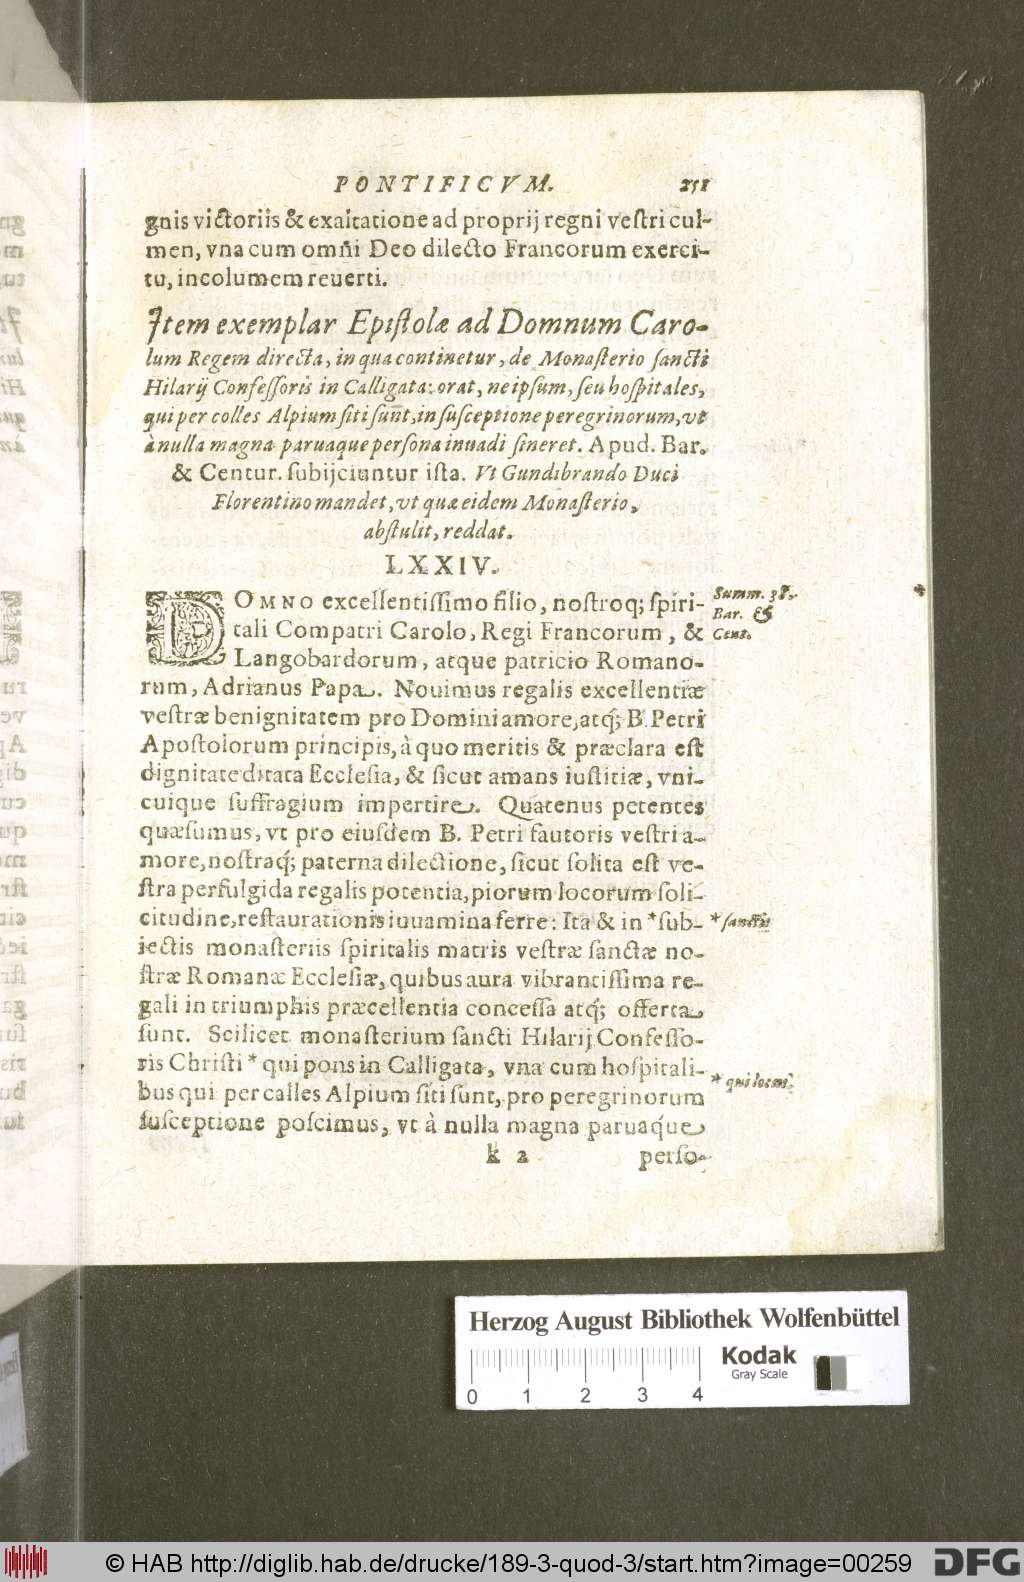 PONTIFICVM. 251
gnis victoriis & exaltatione ad proprij regni vestri cul-
men, vna cum omñi Deo dilecto Francorum exerci-
tu, incolumem reuerti.
Item exemplar Epistolæ ad Domnum Caro-
lum Regem directa, in qua continetur, de Monasterio sancti
Hilarij Confessoris in Calligata: orat, ne ipsum, seu hospitales,
qui per colles Alpium siti sunt, in susceptione peregrinorum, vt
à nulla magna paruaque persona inuadi sineret. Apud. Bar.
& Centur. subijciuntur ista. Vt Gundibrando Duci
Florentino mandet, vt quæ eidem Monasterio,
abstulit, reddat.
LXXIV.
DOMNO excellentissimo filio, nostroq; spiri-
tali Compatri Carolo, Regi Francorum, &
Langobardorum, atque patricio Romano-
rum, Adrianus Papa. Nouimus regalis excellentiæ
vestræ benignitatem pro Domini amore, atq; B. Petri
Apostolorum principis, à quo meritis & præclara est
dignitate ditata Ecclesia, & sicut amans iustitiæ, vni-
cuique suffragium impertire. Quatenus petentes
quæsumus, vt pro eiusdem B. Petri fautoris vestri a-
more, nostraq; paterna dilectione, sicut solita est ve-
stra perfulgida regalis potentia, piorum locorum soli-
citudine, restaurationis iuuamina ferre: Ita & in * sub-
iectis monasteriis spiritalis matris vestræ sanctæ no-
stræ Romanæ Ecclesiæ, quibus aura vibrantissima re-
gali in triumphis præcellentia concessa atq; offerta
sunt. Scilicet monasterium sancti Hilarij Confesso-
ris Christi * qui pons in Calligata, vna cum hospitali-
bus qui per calles Alpium siti sunt, pro peregrinorum
susceptione poscimus, vt à nulla magna paruáque
k 2 perso-
Summ. 38.
Bar. &
Cent.
* sanctis
* qui locus
Herzog August Bibliothek Wolfenbüttel
Kodak
Gray Scale
0 1 2 3 4
© HAB http://diglib.hab.de/drucke/189-3-quod-3/start.htm?image=00259
DFG